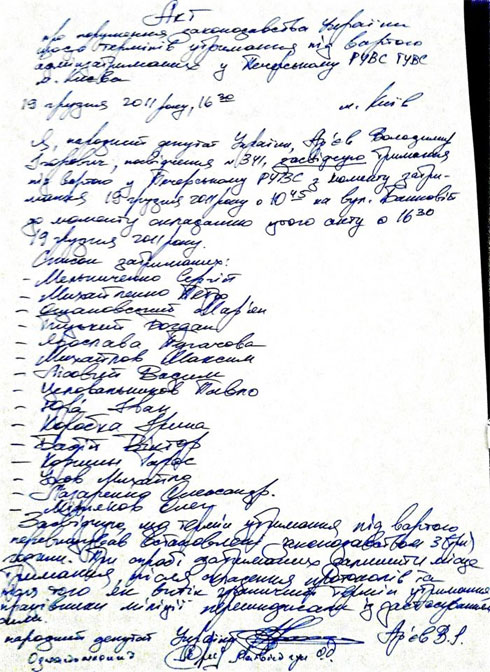 Акт
про порушення законодавства України
щодо термінів утримання під вартою
адмінзатриманих у Печерському РУВС ГУВС
м. Києва
19 грудня 2011 року, 16 30 м. Київ
Я, народний депутат України, Ар'єв Володимир
Ігорович, посвідчення № 341, засвідчую тримання
під вартою у Печерському РУВС з моменту затри-
мання 19 грудня 2011 року о 10 45 на вул. Банковій
до моменту складання цього акту о 16 30
19 грудня 2011 року.
Список затриманих:
– Мельниченко Сергій
– Михайленко Петро
– Мар'ян
– Богдан
– Ярослава Пугачова
– Михайлов Максим
– Лісовий Василь
– Целовальніцов Павло
– Юра Іван
– Коробка Ірина
– Бабій Віктор
– Тарас
– Михайло
– Лазаренко Олександр.
– Олег
Засвідчую, що термін утримання під вартою
перевищував встановлені законодавством 3 (три)
години. При спробі затриманих залишити місце
тримання після складення протоколів та
того як витік граничний термін утримання
працівники міліції перешкоджали із застосуванням
сили.
народний депутат України Ар'єв В.І.
Ознайомлений